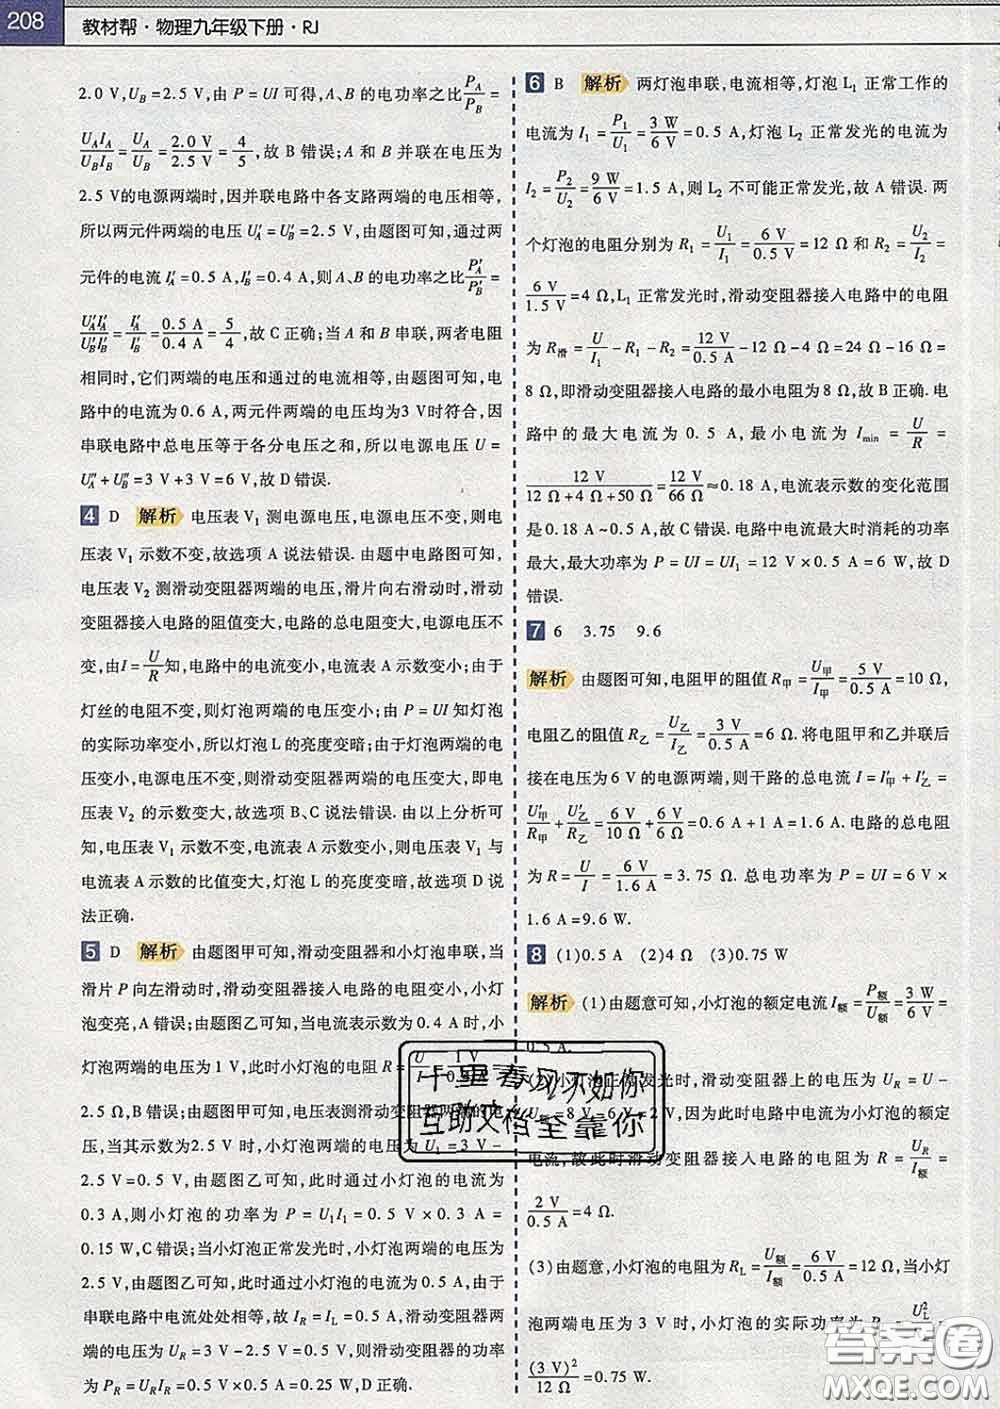 208 教材帮·物理九年级下册·RJ
2.0 V,U_B=2.5 V,由 P=UI 可得,A、B 的电功率之比P_A/P_B=
U_AI_A/U_BI_B=U_A/U_B=2.0 V/2.5 V=4/5,故 B 错误;A 和 B 并联在电压为
2.5 V的电源两端时,因并联电路中各支路两端的电压相等,
所以两元件两端的电压 U′_A=U′_B=2.5 V,由题图可知,通过两
元件的电流 I′_A=0.5 A,I′_B=0.4 A,则 A、B 的电功率之比P′_A/P′_B=
U′_AI′_A/U′_BI′_B=I′_A/I′_B=0.5 A/0.4 A=5/4,故 C 正确;当 A 和 B 串联,两者电阻
相同时,它们两端的电压和通过的电流相等,由题图可知,电
路中的电流为 0.6 A,两元件两端的电压均为3 V时符合,因
串联电路中总电压等于各分电压之和,所以电源电压 U=
U″_A+U″_B=3 V+3 V=6 V,故 D 错误.
4 D 解析 电压表 V₁ 测电源电压,电源电压不变,则电
压表 V₁ 示数不变,故选项 A 说法错误. 由题中电路图可知,
电压表 V₂ 测滑动变阻器两端的电压,滑片向右滑动时,滑动
变阻器接入电路的阻值变大,电路的总电阻变大,电源电压不
变,由I=U/R知,电路中的电流变小,电流表 A 示数变小;由于
灯丝的电阻不变,则灯泡两端的电压变小;由 P=UI 知灯泡
的实际功率变小,所以灯泡 L 的亮度变暗;由于灯泡两端的电
压变小,电源电压不变,则滑动变阻器两端的电压变大,即电
压表 V₂ 的示数变大,故选项 B、C 说法错误. 由以上分析可
知,电压表 V₁ 示数不变,电流表 A 示数变小,则电压表 V₁ 与
电流表 A 示数的比值变大,灯泡 L 的亮度变暗,故选项 D 说
法正确.
5 D 解析 由题图甲可知,滑动变阻器和小灯泡串联,当
滑片 P 向左滑动时,滑动变阻器接入电路的电阻变小,小灯
泡变亮,A 错误;由题图乙可知,当电流表示数为 0.4 A 时,小
灯泡两端的电压为 1 V,此时小灯泡的电阻 R=U/I=1 V/
2.5 Ω,B 错误;由题图甲可知,电压表测滑动变阻器两端的
电压,当其示数为2.5 V时,小灯泡两端的电压为 U₁=3 V-
2.5 V=0.5 V,由题图乙可知,此时通过小灯泡的电流为
0.3 A,则小灯泡的功率为 P=U₁I₁=0.5 V×0.3 A=
0.15 W,C 错误;当小灯泡正常发光时,小灯泡两端的电压为
2.5 V,由题图乙可知,此时通过小灯泡的电流为 0.5 A,由于
串联电路中电流处处相等,故 I_R=I_L=0.5 A,滑动变阻器两
端的电压为 U_R=3 V-2.5 V=0.5 V,则滑动变阻器的功率
为 P_R=U_RI_R=0.5 V×0.5 A=0.25 W,D 正确.
6 B 解析 两灯泡串联,电流相等,灯泡 L₁ 正常工作的
电流为 I₁=P₁/U₁=3 W/6 V=0.5 A,灯泡 L₂ 正常发光的电流为
I₂=P₂/U₂=9 W/6 V=1.5 A,则 L₂ 不可能正常发光,故 A 错误. 两
个灯泡的电阻分别为 R₁=U₁/I₁=6 V/0.5 A=12 Ω 和 R₂=U₂/I₂=
6 V/1.5 A=4 Ω,L₁ 正常发光时,滑动变阻器接入电路中的电阻
为 R滑=U/I₁-R₁-R₂=12 V/0.5 A-12 Ω-4 Ω=24 Ω-16 Ω=
8 Ω,即滑动变阻器接入电路的最小电阻为 8 Ω,故 B 正确. 电
路中的最大电流为 0.5 A,最小电流为 I_min=U/R=
12 V/(12 Ω+4 Ω+50 Ω)=12 V/66 Ω≈0.18 A,电流表示数的变化范围
是 0.18 A~0.5 A,故 C 错误. 电路中电流最大时消耗的功率
最大,最大功率为 P=UI=UI₁=12 V×0.5 A=6 W,故 D
错误.
7 6 3.75 9.6
解析 由题图可知,电阻甲的阻值 R甲=U甲/I甲=5 V/0.5 A=10 Ω,
电阻乙的阻值 R乙=U乙/I乙=3 V/0.5 A=6 Ω. 将电阻甲和乙并联后
接在电压为 6 V 的电源两端,则干路的总电流 I=I′甲+I′乙=
U′甲/R甲+U′乙/R乙=6 V/10 Ω+6 V/6 Ω=0.6 A+1 A=1.6 A. 电路的总电阻
为 R=U/I=6 V/1.6 A=3.75 Ω. 总电功率为 P=UI=6 V×
1.6 A=9.6 W.
8 (1)0.5 A (2)4 Ω (3)0.75 W
解析 (1)由题意可知,小灯泡的额定电流 I额=P额/U额=3 W/6 V=
0.5 A.
小灯泡正常发光时,滑动变阻器上的电压为 U_R=U-
=8 V-6 V=2 V,因为此时电路中电流为小灯泡的额定
电流,故此时滑动变阻器接入电路的电阻为 R=U_R/I额=
2 V/0.5 A=4 Ω.
(3)由题意,小灯泡的电阻为 R_L=U额/I额=6 V/0.5 A=12 Ω,当小灯
泡两端电压为 3 V 时,小灯泡的实际功率为 P
(3 V)²/12 Ω=0.75 W.
千里春风不如你
互助文档全靠你
答案圈
MXQE.COM